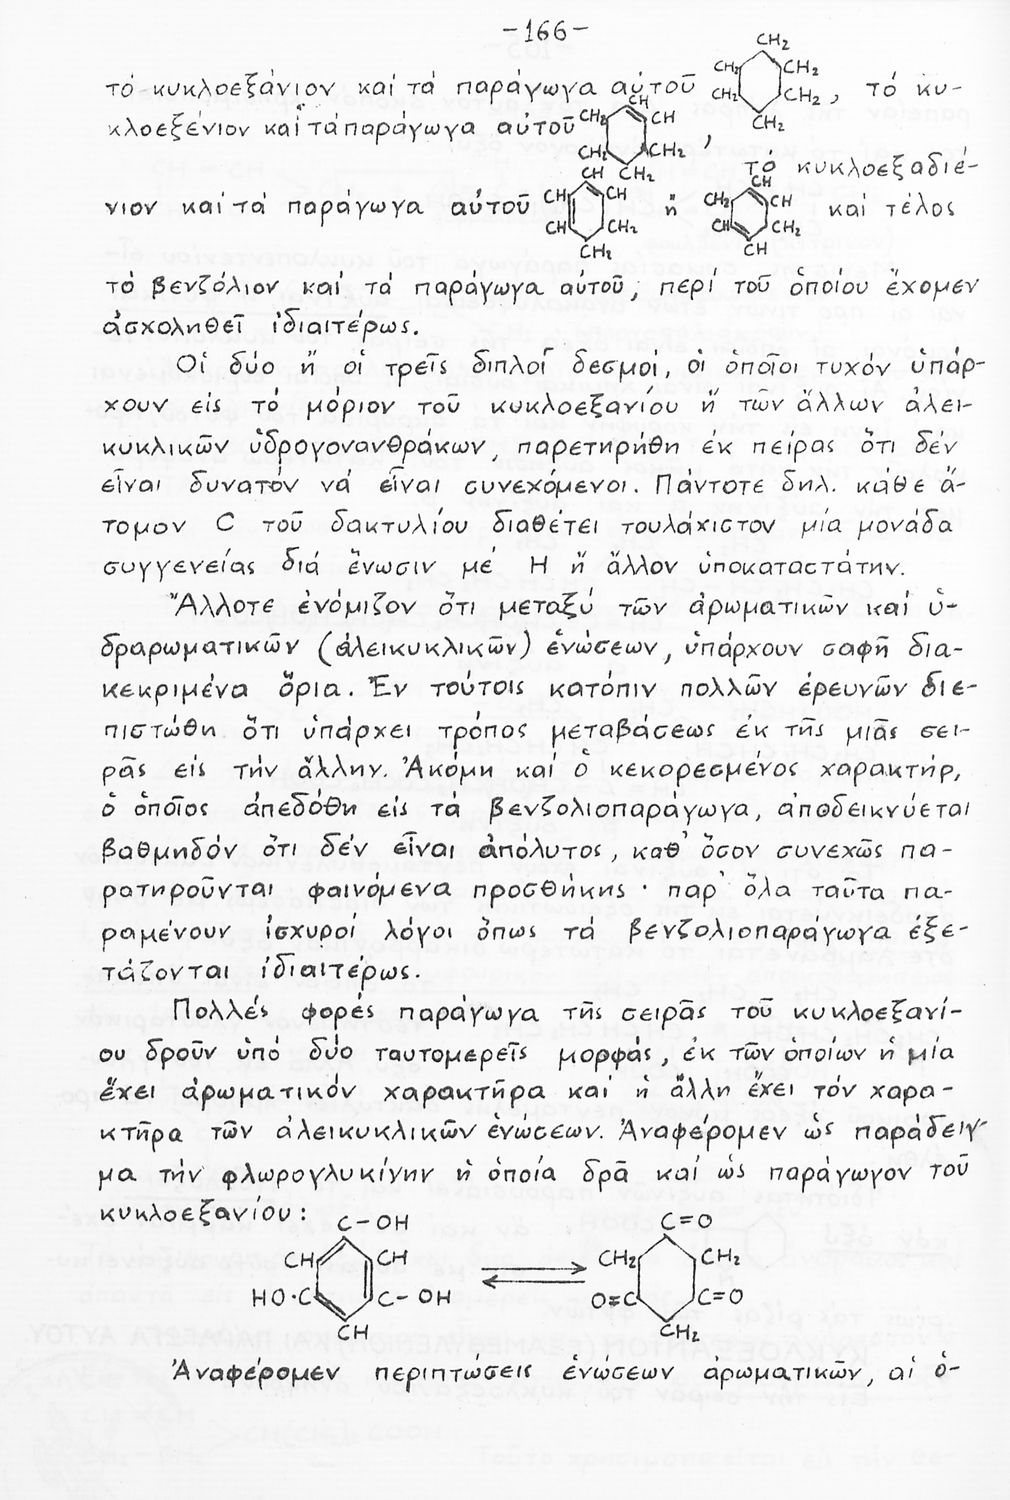 -166-
τό κυκλοεξάνιον καί τά παράγωγα αὐτοῦ CH2 CH2 CH2 CH2 CH2 CH2, τό κυ-
κλοεξένιον καί τά παράγωγα αὐτοῦ CH CH2 CH CH2 CH2 CH2,
τό κυκλοεξαδιέ-
νιον καί τά παράγωγα αὐτοῦ CH CH CH CH CH2 CH2 ἤ CH CH2 CH CH CH2 CH καί τέλος
τό βενζόλιον καί τά παράγωγα αὐτοῦ, περί τοῦ ὁποίου ἔχομεν
ἀσχοληθεῖ ἰδιαιτέρως.
Οἱ δύο ἤ οἱ τρεῖς διπλοῖ δεσμοί, οἱ ὁποῖοι τυχόν ὑπάρ-
χουν εἰς τό μόριον τοῦ κυκλοεξανίου ἤ τῶν ἄλλων ἀλει-
κυκλικῶν ὑδρογονανθράκων, παρετηρήθη ἐκ πείρας ὅτι δέν
εἶναι δυνατόν νά εἶναι συνεχόμενοι. Πάντοτε δηλ. κάθε ἄ-
τομον C τοῦ δακτυλίου διαθέτει τουλάχιστον μία μονάδα
συγγενείας διά ἕνωσιν μέ H ἤ ἄλλον ὑποκαταστάτην.
Ἄλλοτε ἐνόμιζον ὅτι μεταξύ τῶν ἀρωματικῶν καί ὑ-
δραρωματικῶν (ἀλεικυκλικῶν) ἑνώσεων, ὑπάρχουν σαφῆ δια-
κεκριμένα ὅρια. Ἐν τούτοις κατόπιν πολλῶν ἐρευνῶν διε-
πιστώθη ὅτι ὑπάρχει τρόπος μεταβάσεως ἐκ τῆς μιᾶς σει-
ρᾶς εἰς τήν ἄλλην. Ἀκόμη καί ὁ κεκορεσμένος χαρακτήρ,
ὁ ὁποῖος ἀπεδόθη εἰς τά βενζολιοπαράγωγα, ἀποδεικνύεται
βαθμηδόν ὅτι δέν εἶναι ἀπόλυτος, καθ' ὅσον συνεχῶς πα-
ρατηροῦνται φαινόμενα προσθήκης· παρ' ὅλα ταῦτα πα-
ραμένουν ἰσχυροί λόγοι ὅπως τά βενζολιοπαράγωγα ἐξε-
τάζονται ἰδιαιτέρως.
Πολλές φορές παράγωγα τῆς σειρᾶς τοῦ κυκλοεξανί-
ου δροῦν ὑπό δύο ταυτομερεῖς μορφάς, ἐκ τῶν ὁποίων ἡ μία
ἔχει ἀρωματικόν χαρακτῆρα καί ἡ ἄλλη ἔχει τόν χαρα-
κτῆρα τῶν ἀλεικυκλικῶν ἑνώσεων. Ἀναφέρομεν ὡς παράδειγ-
μα τήν φλωρογλυκίνην ἡ ὁποία δρᾶ καί ὡς παράγωγον τοῦ
κυκλοεξανίου:
C-OH C=O
CH CH CH2 CH2
HO·C C-OH O=C C=O
CH CH2
Ἀναφέρομεν περιπτώσεις ἑνώσεων ἀρωματικῶν, αἱ ὁ-